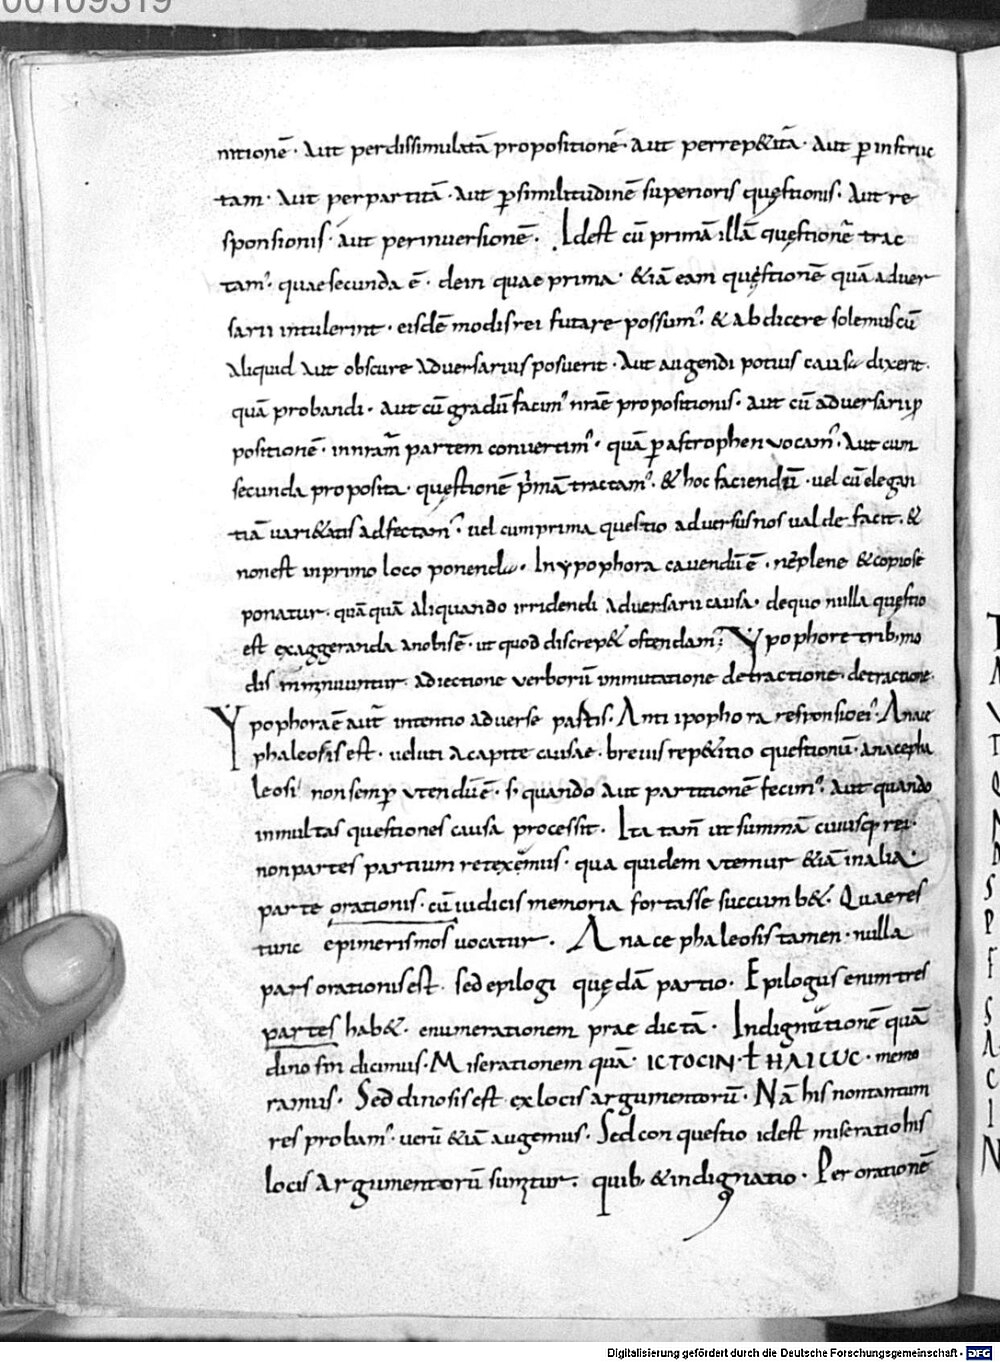 00109319
nitionē · Aut per dissimulatā propositionē · aut per rep&itā · Aut ꝑ instruc
tam · Aut per partitā · aut ꝑ similitudinē superioris quęstionis · Aut re
sponsionis · aut per inuersionē · Idest cū primā illā quęstionē trac
tam᾽ · quae secunda ē · dein quae prima · &iā eam quęstionē quā aduer
sarii intulerint · eisdē modis refutare possum᾽ · & abdicere solemus cū
aliquid aut obscure aduersarius posuerit · Aut augendi potius causa dixerit ·
quā probandi · aut cū gradū facim᾽ nrāe propositionis · aut cū aduersarii ꝓ
positionē · in nrām partem conuertim᾽ · quā ꝑ astrophen vocam᾽ · Aut cum
secunda proposita · quęstionē prīmā tractam᾽ · & hoc faciendū · vel cū elegan
tiā uari&atis adfectam᾽ · uel cum prima questio aduersus nos valde facit · &
non est in primo loco ponenda · In ypophora cauendū ē · nē plene & copiose
ponatur · quāquā aliquando irridendi aduersarii causa · de quo nulla quęstio
est exaggeranda a nobis ē · ut quod discrep& ostendam᾽ · Ypophore trib; mo
dis inueniuntur · adiectione verborū inmutatione detractione · detractione ·
Ypophora ē aut̄ intentio aduerse partis · Anti ipophora responsio ei᾽ · Anace
phaleosis est · veluti a capite causae · breuis rep&itio questionū · anacepha
leosi non semp̄ vtendū ē · s · quando aut partitionē fecim᾽ · aut quando
in multas questiones causa processit · Ita tam̄ ut summā cuiusq; rei ·
non partes partium retexemus · qua quidem vtemur &iā in alia
parte orationis · cū iudicis memoria fortasse succumb& · Quae res
tunc epimerismos vocatur · Anacephaleosis tamen · nulla
pars orationis est · sed epilogi quędā partio · Epilogus enim tres
partes hab& · enumerationem prae dictā · Indignationē quā
dinosin dicimus · Miserationem quā · ΙCΤΟCΙΝ · ł ΗΛΙWC · memo
ramus · Sed dinosis est ex locis argumentorū · Nā his non tantum
res probam᾽ · uerū &iā augemus · Sed conquestio idest miseratio his
locis argumentorū sumitur · quib; & indignatio · Per orationē
Digitalisierung gefördert durch die Deutsche Forschungsgemeinschaft - DFG